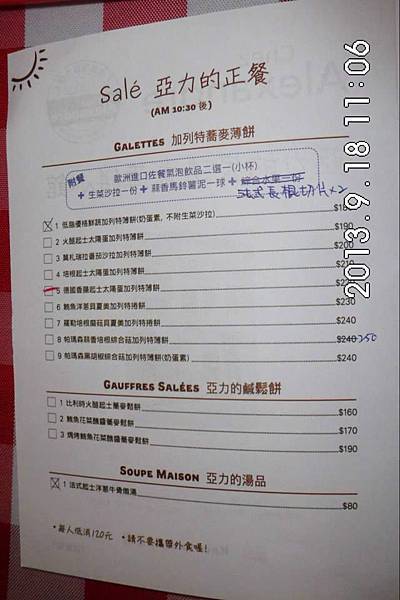 Salé 亞力的正餐
(AM 10:30 後)
GALETTES 加列特蕎麥薄餅
附餐 歐洲進口佐餐氣泡飲品二選一(小杯)
+ 生菜沙拉一份 + 蒜香馬鈴薯泥一球 + 綜合水果一份 法式長棍切片x2
1 低脂優格鮮蔬加列特薄餅(奶蛋素, 不附生菜沙拉) $180
2 火腿起士太陽蛋加列特薄餅 $190
3 莫札瑞拉番茄沙拉加列特薄餅 $200
4 培根起士太陽蛋加列特薄餅 $210
5 德國香腸起士太陽蛋加列特薄餅
6 鮪魚洋蔥貝夏美加列特捲餅 $230
7 羅勒培根蘑菇貝夏美加列特捲餅 $240
8 帕瑪森蒜香培根綜合菇加列特薄餅 $240 250
9 帕瑪森黑胡椒綜合菇加列特薄餅(奶蛋素) $240
GAUFFRES SALÉES 亞力的鹹鬆餅
1 比利時火腿起士蕎麥鬆餅 $160
2 鮪魚花菜醺醬蕎麥鬆餅 $170
3 焗烤鮪魚花菜醺醬蕎麥鬆餅 $190
SOUPE MAISON 亞力的湯品
1 法式起士洋蔥牛骨燉湯 $80
•每人低消120元 •請不要攜帶外食喔!
2013.9.18 11:06